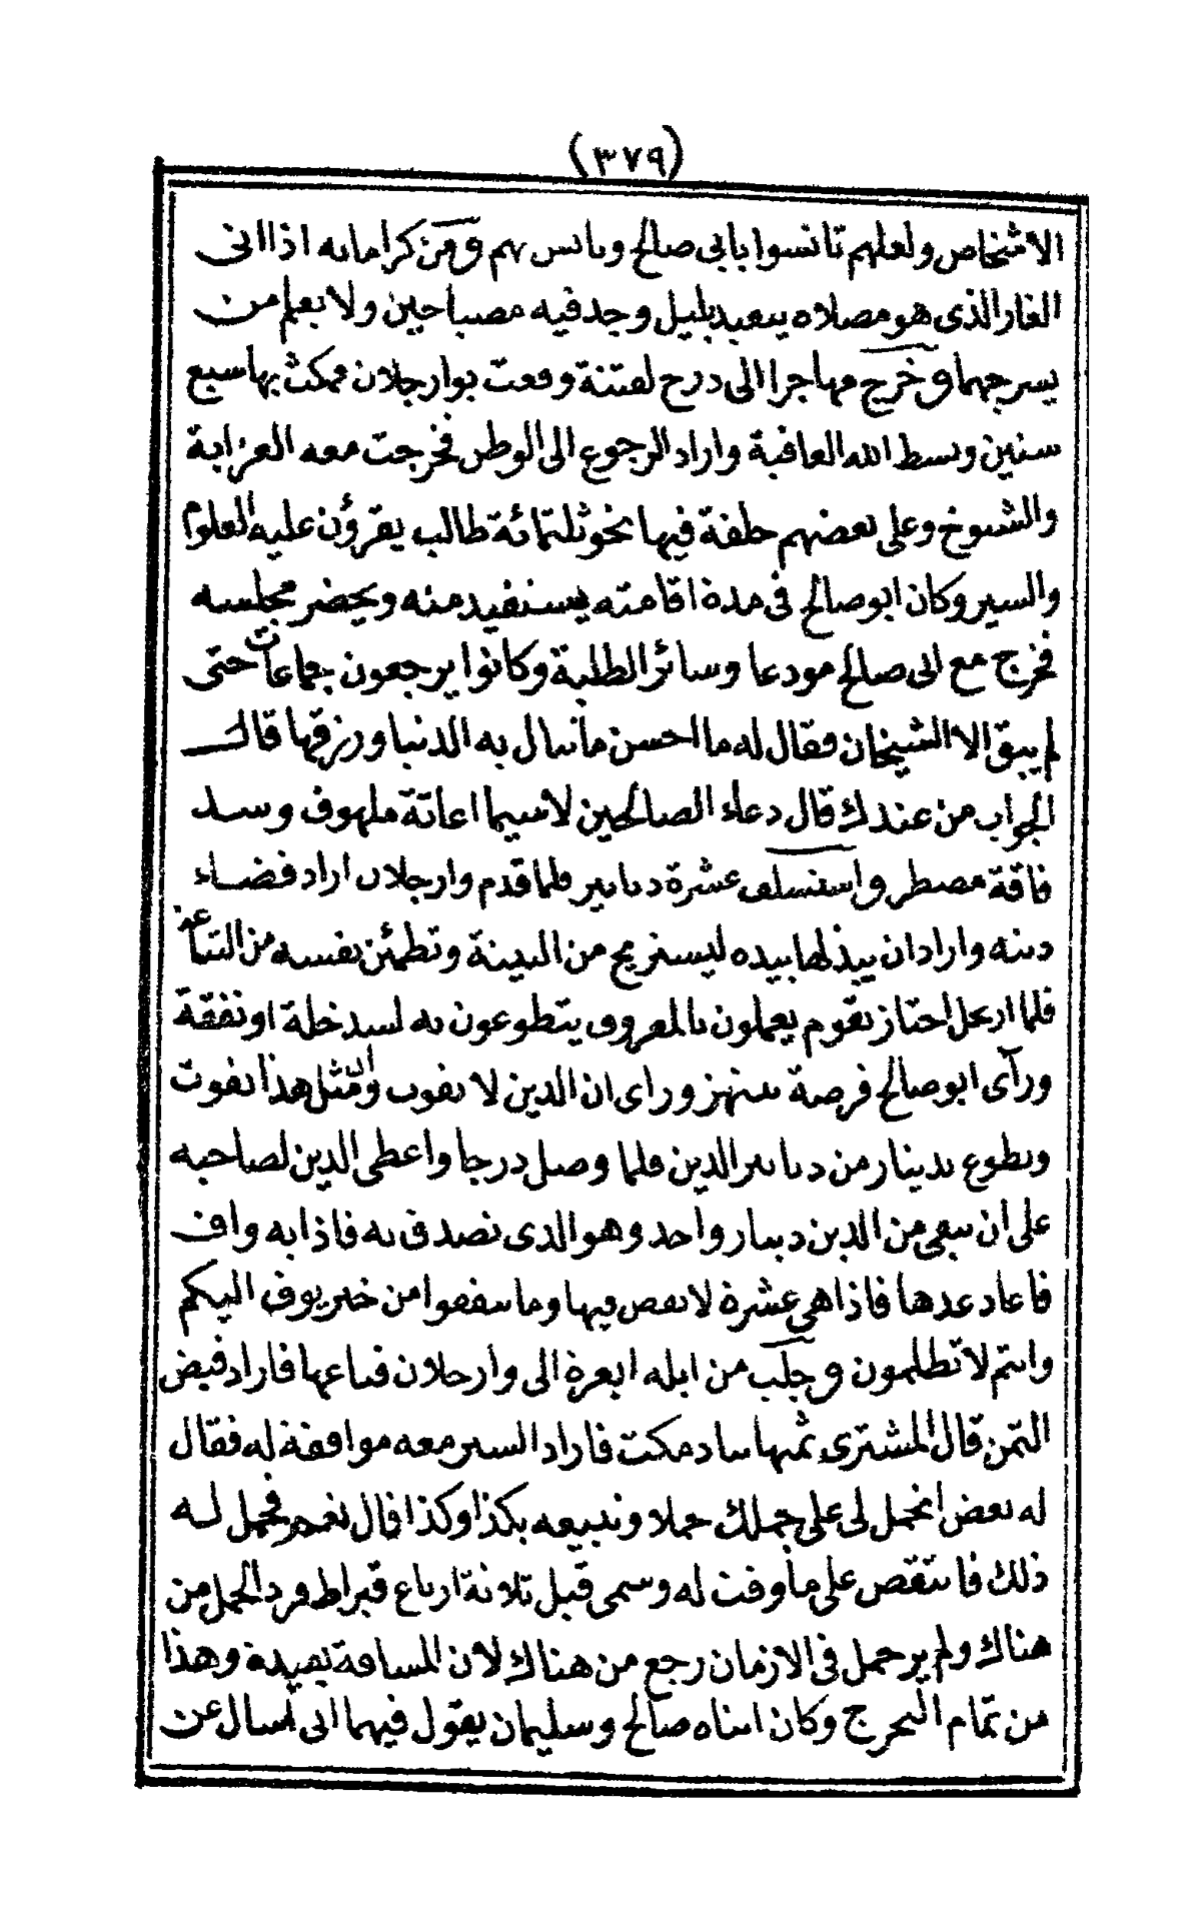 (٣٧٩)
الاشخاص ولعلهم تانسوا بابي صالح ويانس بهم ومن كراماته اذا اتى
الغار الذى هو مصلاه يتعبد بليل وجد فيه مصباحين ولا يعلم من
يسرجهما وخرج مهاجرا الى درج لفتنة وقعت بوارجلان فمكث بها سبع
سنين وبسط الله العافية واراد الرجوع الى الوطن فخرجت معه العزابة
والشيوخ وعلى بعضهم حلقة فيها نحو ثلثمائة طالب يقرؤن عليه العلوم
والسير وكان ابو صالح فى مدة اقامته يستفيد منه ويحضر مجلسه
فخرج مع ابى صالح مودعا وسائر الطلبة وكانوا يرجعون جماعات حتى
لم يبق الا الشيخان فقال له ما احسن ما تنال به الدنيا ورزقها قال
الجواب من عندك قال دعاء الصالحين لاسيما اغاثة ملهوف وسد
فاقة مضطر واستسلف عشرة دنانير فلما قدم وارجلان اراد قضاء
دينه واراد ان يبذلها بيده ليستريح من البينة وتطمئن نفسه من التباعة
فلما ارتحل اجتاز بقوم يعملون بالمعروف يتطوعون به لسد خلة او نفقة
ورآى ابو صالح فرصة تنتهز وراى ان الدين لا يفوت والمثل هذا يفوت
وتطوع بدينار من دنانير الدين فلما وصل درجا واعطى الدين لصاحبه
على ان بقى من الدين دينار واحد وهو الذى تصدق به فاذا به واف
فاعاد عدها فاذا هى عشرة لا نقص فيها وما تنفقوا من خير يوف اليكم
وانتم لا تظلمون وجلب من ابله ابعرة الى وارجلان فباعها فاراد قبض
الثمن قال المشترى ثمنها بتادمكت فاراد السير معه موافقة له فقال
له بعض اتحمل لى على جملك حملا وتبيعه بكذا وكذا قال نعم فحمل له
ذلك فانتقص على ما وقت له وسمى قبل ثلاثة ارباع قيراط فرد الحمل من
هناك ولم ير حمل فى الازمان رجع من هناك لان المسافة بعيدة وهذا
من تمام التحرج وكان ابناه صالح وسليمان يقول فيهما انى اسال عن